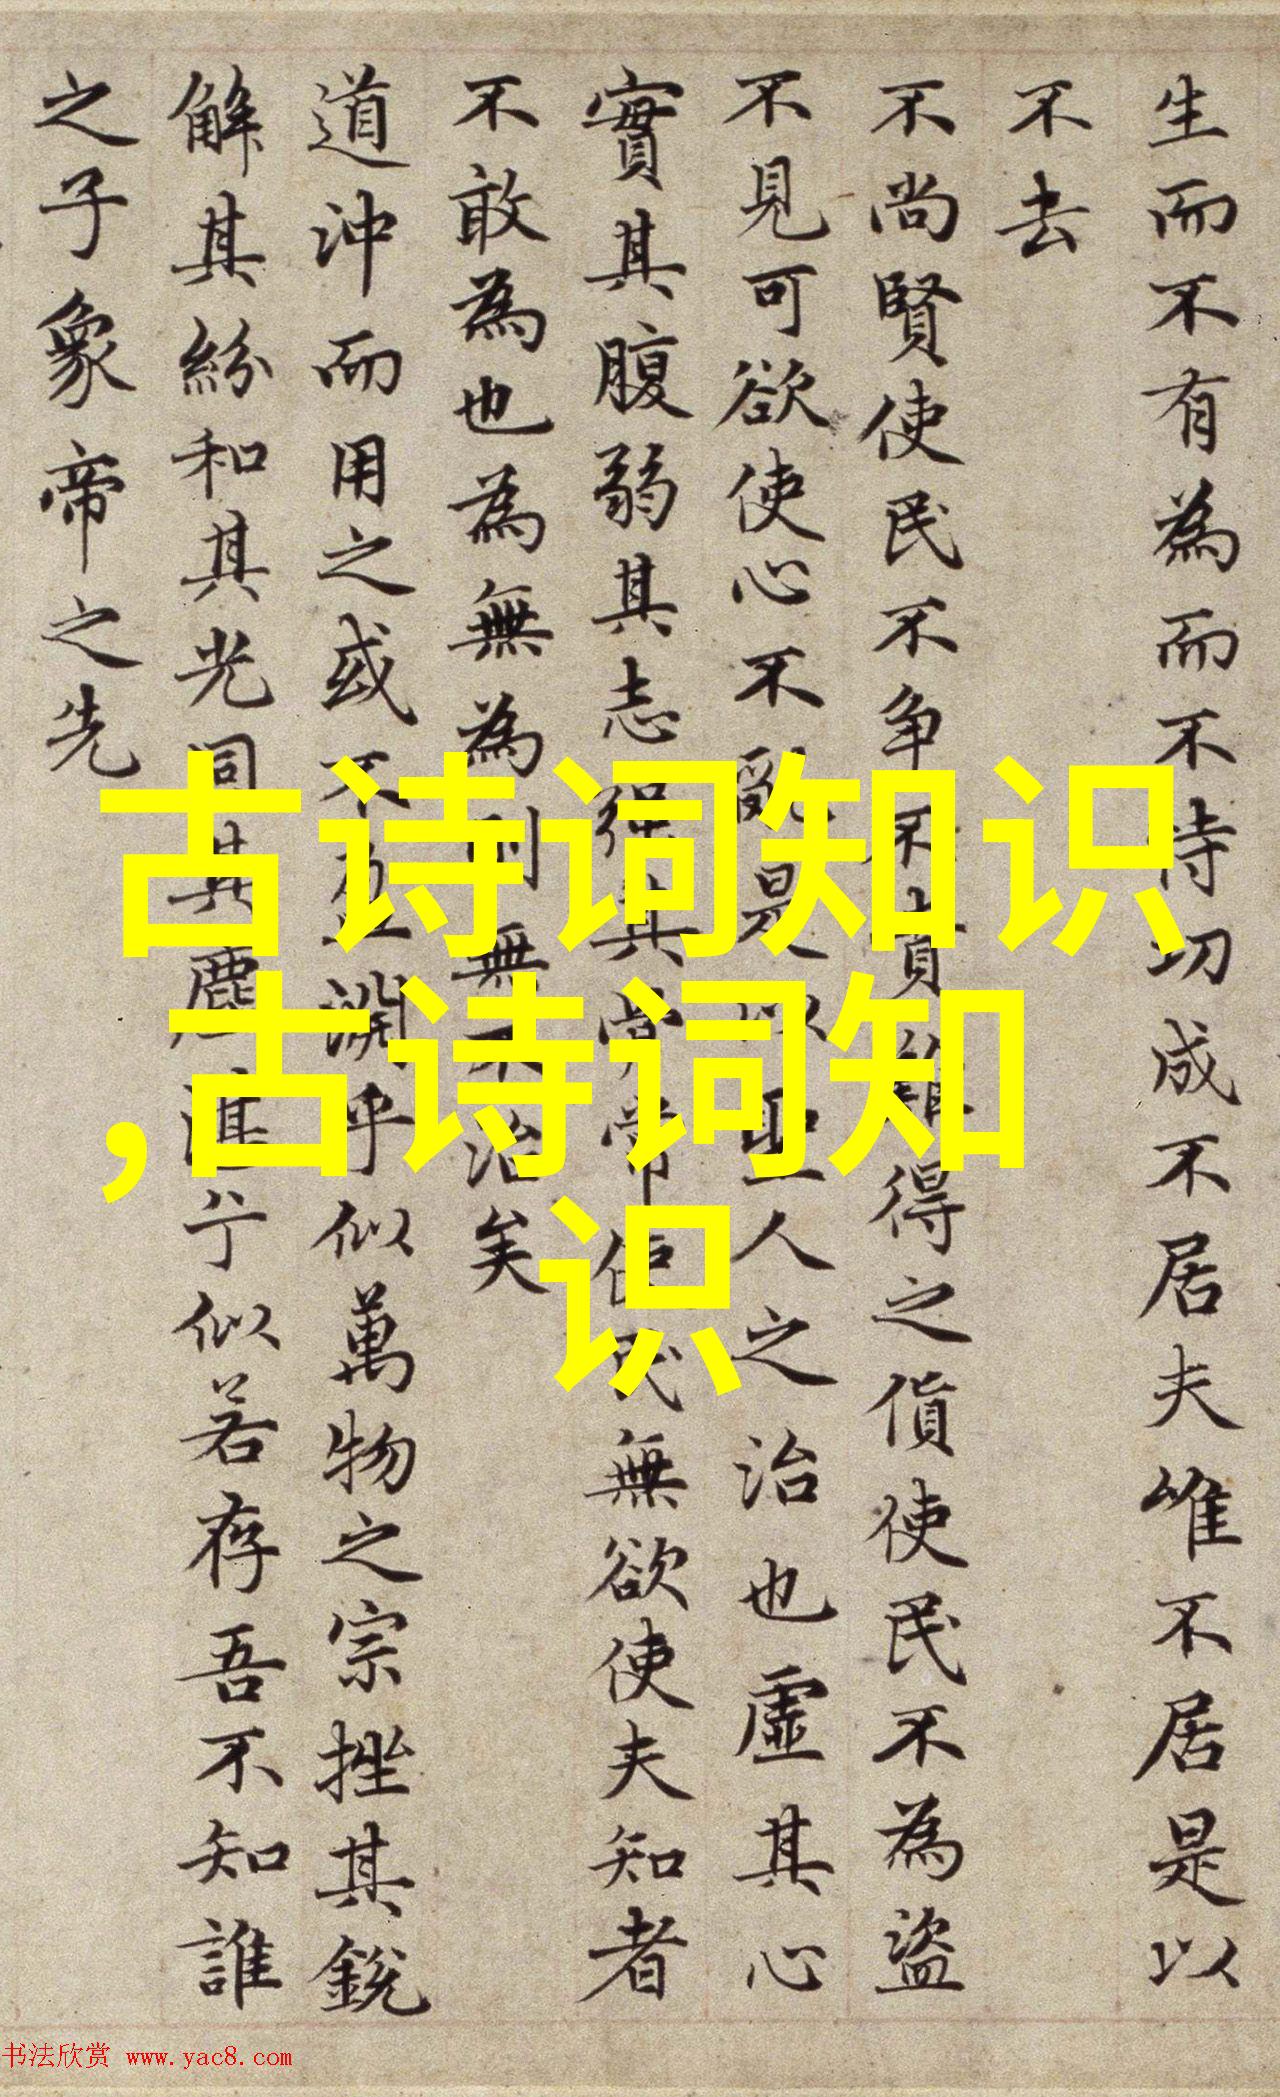 生而不有為而不恃功成不居夫唯不居是以
不去
不尚賢使民不争不貴難得之貨使民不為盜
不見可欲使心不亂是以聖人之治也虛其心
實其腹弱其志強其骨常使民無欲使夫知者
不敢為也為無為則無不治矣
道沖而用之或不盈淵乎似萬物之宗挫其銳
解其紛和其光同其塵湛兮似若存吾不知誰
之子象帝之先
古诗词知识
,古诗词知
识
书法欣赏 www.yac8.com